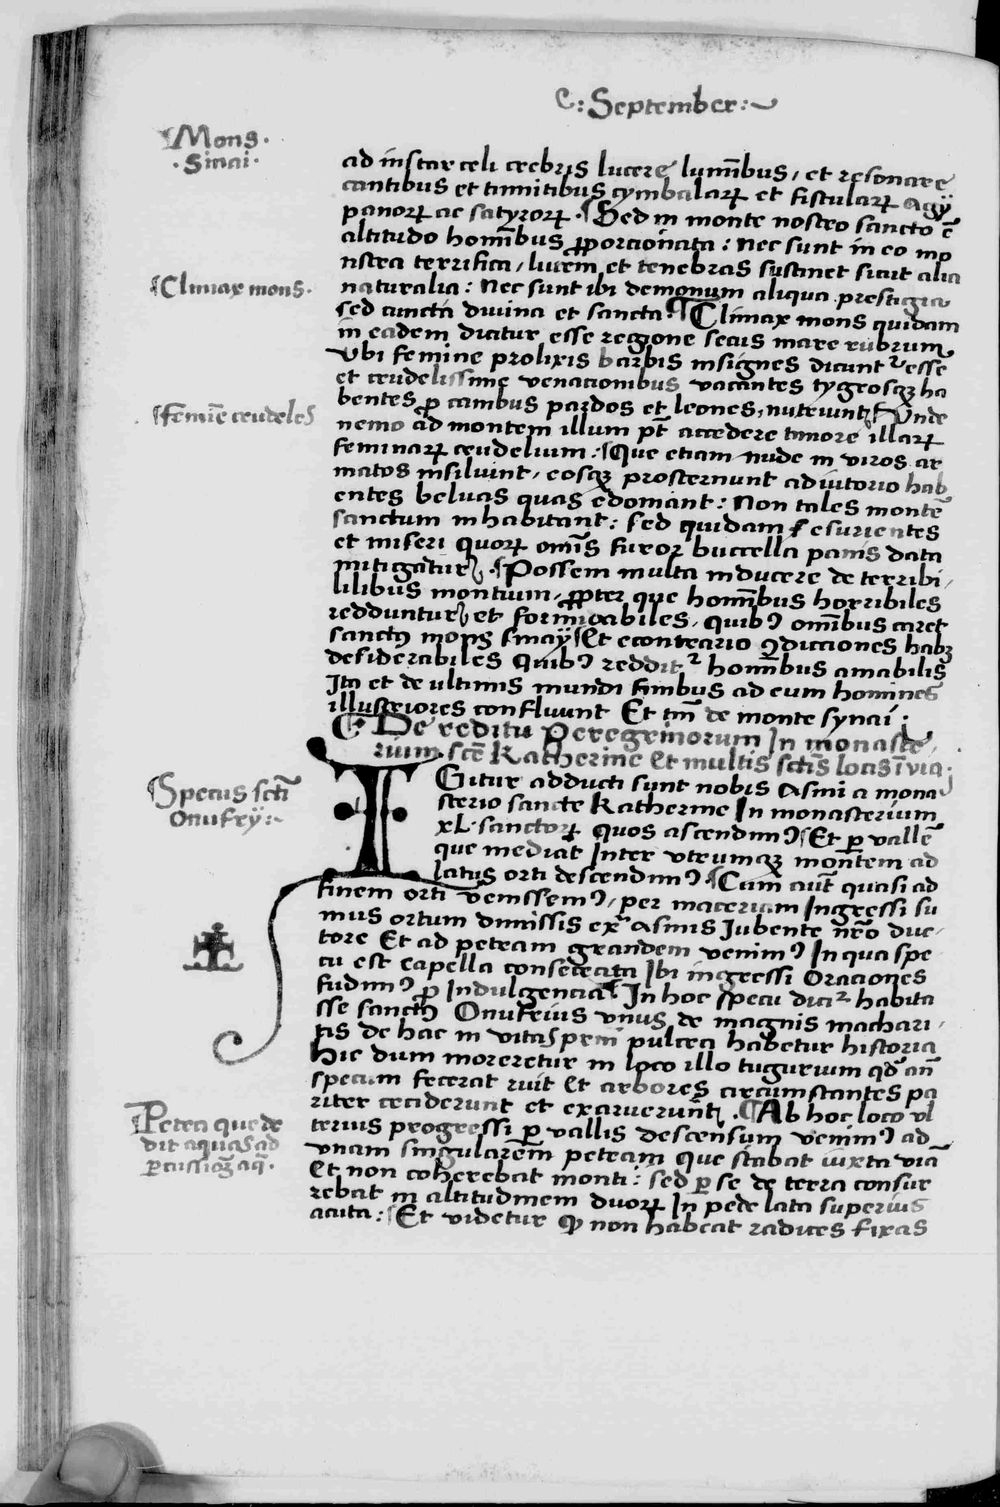 C: September:~
Mons.
.Sinai.
ad instar celi crebris lucere lumībus, et resonare
cantibus et tinnitibus cymbalarꝝ et fistularꝝ Agÿ
panorꝝ ac satyrorꝝ. ¶Sed in monte nostro sancto ē
altitudo homībus ꝓporcionata: nec sunt in eo mo
nstra terrifica, lucem et tenebras sustinet sicut alia
¶Climax mons.
naturalia: Nec sunt ibi demonum aliqua prestigia
sed cuncta divina et sancta. ¶Climax mons quidam
in eadem dicitur esse regione secus mare rubrum
Vbi femine prolixis barbis insignes dicuntᷣ esse
et crudelissime venacionibus vacantes tygrosqꝫ ha
bentes ꝓ canibus pardos et leones, nutriunt, ¶Vnde
¶femīe crudeles
nemo ad montem illum pt̄ accedere timore illarꝝ
feminarꝝ crudelium: ¶Que etiam nude in viros ar
matos insiliunt, eosqꝫ prosternunt adiutorio hab
entes beluas quas edomant: Non tales montē
sanctum inhabitant: sed quidam esurientes
et miseri quorꝝ omīs furor buccella panis data
mitigatur, ¶Possem multa inducere de terribi,
lilibus montium, ꝓpter que homībus horribiles
redduntur, et formidabiles, quibꝰ omībus caret
sanctꝰ mons sinaÿ ¶Et econtrario ꝯdicciones habꝫ
desiderabiles Quibꝰ redditᷣ homībus amabilis
Ita et de ultimis mundi finibus ad eum homines
illustriores confluunt Et tm̄ de monte synai:
¶ De reditu Peregrinorum In monaste,
rium scē Katherine Et multis sctīs locis ī via.
Specus sctī
Onufrÿ:~
IGitur adducti sunt nobis Asini a mona
sterio sancte Katherine In monasterium
xL. sanctorꝝ quos ascendimꝰ ¶Et ꝑ vallē
que mediat Inter vtrumqꝫ montem ad
latus orti descendimꝰ ¶Cum aut̄ quasi ad
finem orti venissemꝰ, per maceriam Ingressi su
mus ortum dimissis ex Asinis Iubente nr̄o duc,
tore Et ad petram grandem venimꝰ In qua spe
cu est capella consecrata Ibi ingressi Oraciones
fudimꝰ ꝓ Indulgencia ¶In hoc specu dicitᷣ habita
sse sanctꝰ Onufrius vnus de magnis machari,
is de hac in vitas prm̄ pulcra habetur historia
hic dum moreretur in loco illo tugurium qd̄ an̄
specum fecerat ruit Et arbores circumstantes pa
riter ceciderunt et exaruerunt. ¶Ab hoc loco vl
Petra que de
dit aquas ad
ꝑcussiōꝫ aq̄.
terius progressi ꝑ vallis descensum venimꝰ ad
vnam singularem petram que stabat iuxta viā
Et non coherebat monti: sed ꝑ se de terra consur
rebat in altitudinem duorꝝ In pede lata superius
acuta: ¶Et videtur ꝙ non habeat radices fixas